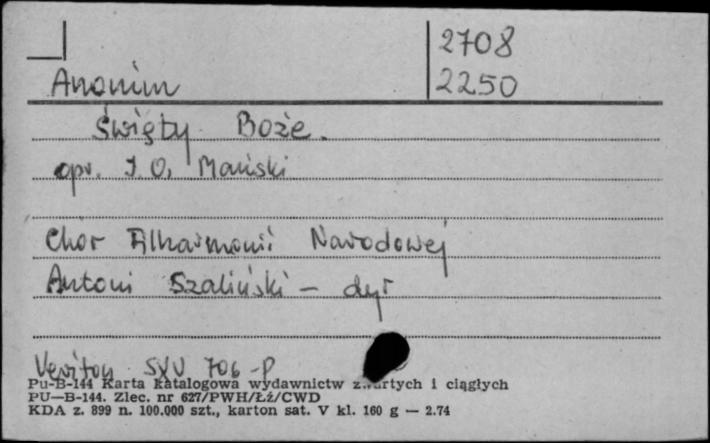 2708
Anonim 2250
Święty Boże.
opr. J. O. Mański
Chór Filharmonii Narodowej
Antoni Szaliński - dyr
Veriton SXV 706-P
Pu-B-144 Karta katalogowa wydawnictw zwartych i ciągłych
PU—B-144. Zlec. nr 627/PWH/Łź/CWD
KDA z. 899 n. 100.000 szt., karton sat. V kl. 160 g — 2.74